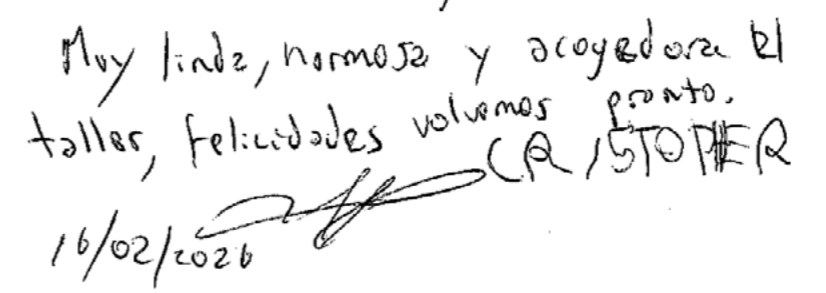 Muy linda, hormosa y acoyedora El
taller, felicidades volvemos pronto.
CRISTOPHER
16/02/2026